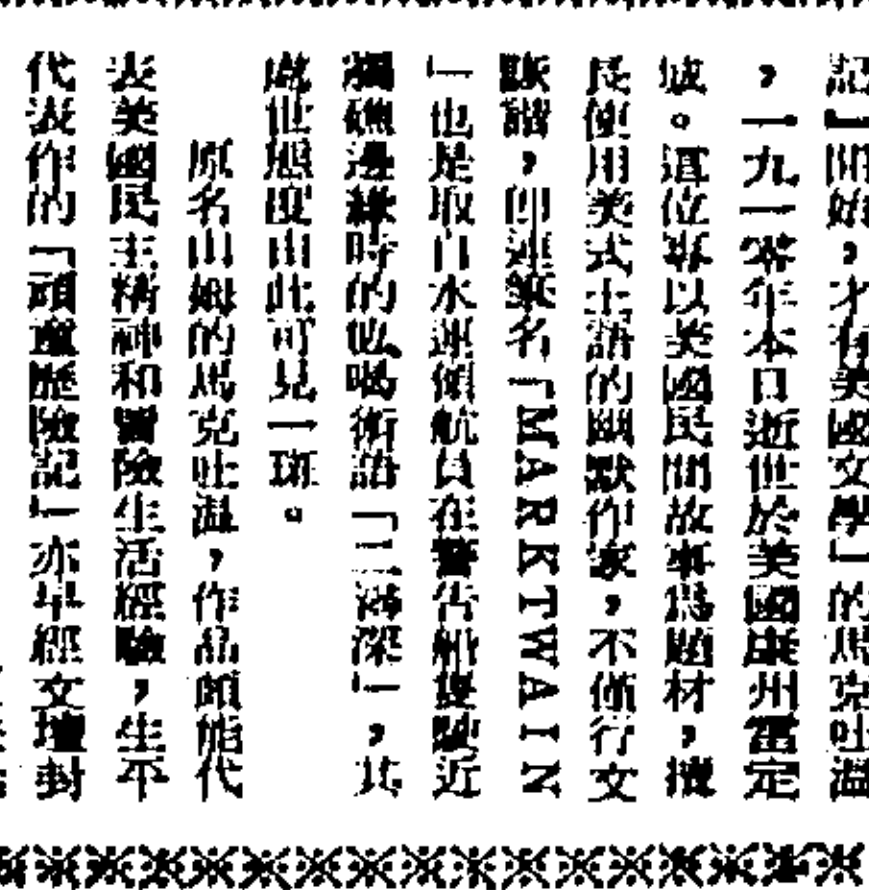 記』開始，才有美國文學」的馬克吐溫
，一九一零年本日逝世於美國康州雷定
城。這位專以美國民間故事為題材，擅
長使用美式土語的幽默作家，不僅行文
詼諧，即連筆名「MARKTWAIN
」也是取自水運領航員在警告船隻駛近
擱礁邊緣時的吆喝術語「二潯深」，其
處世態度由此可見一斑。
原名山姆的馬克吐溫，作品頗能代
表美國民主精神和冒險生活經驗，生平
代表作的「頑童歷險記」亦早經文壇封